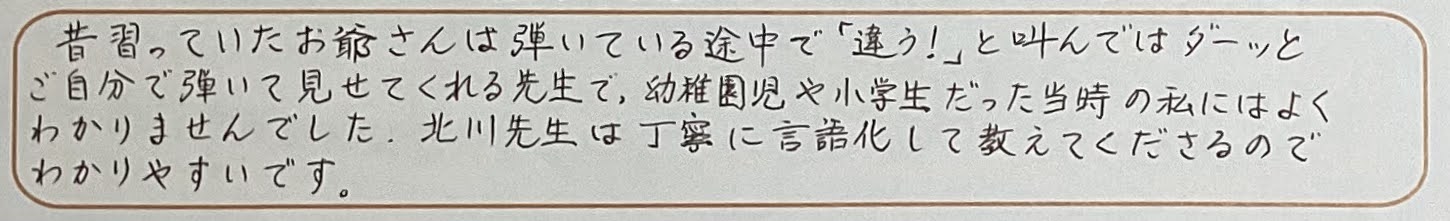 昔習っていたお爺さんは弾いている途中で「違う!」と叫んではダーッと
ご自分で弾いて見せてくれる先生で,幼稚園児や小学生だった当時の私にはよく
わかりませんでした.北川先生は丁寧に言語化して教えてくださるので
わかりやすいです。